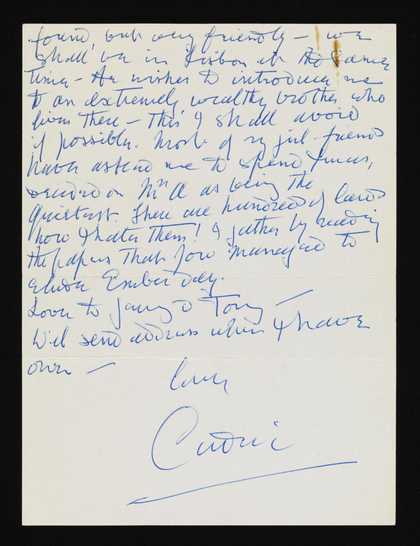 found, but very friendly – we
shall be in Lisbon at the same
time – He wishes to introduce me
to an extremely wealthy brother who
lives there – This I shall avoid
if possible. Most of my girl-friends
have asked me to spend Xmas,
decided on Mrs A as being the
quietest. There are hundreds of
how I hate them! I gather by reading
the papers that you managed to
Ember day.
Love to & Tony –
Will send address when I have
own –
love